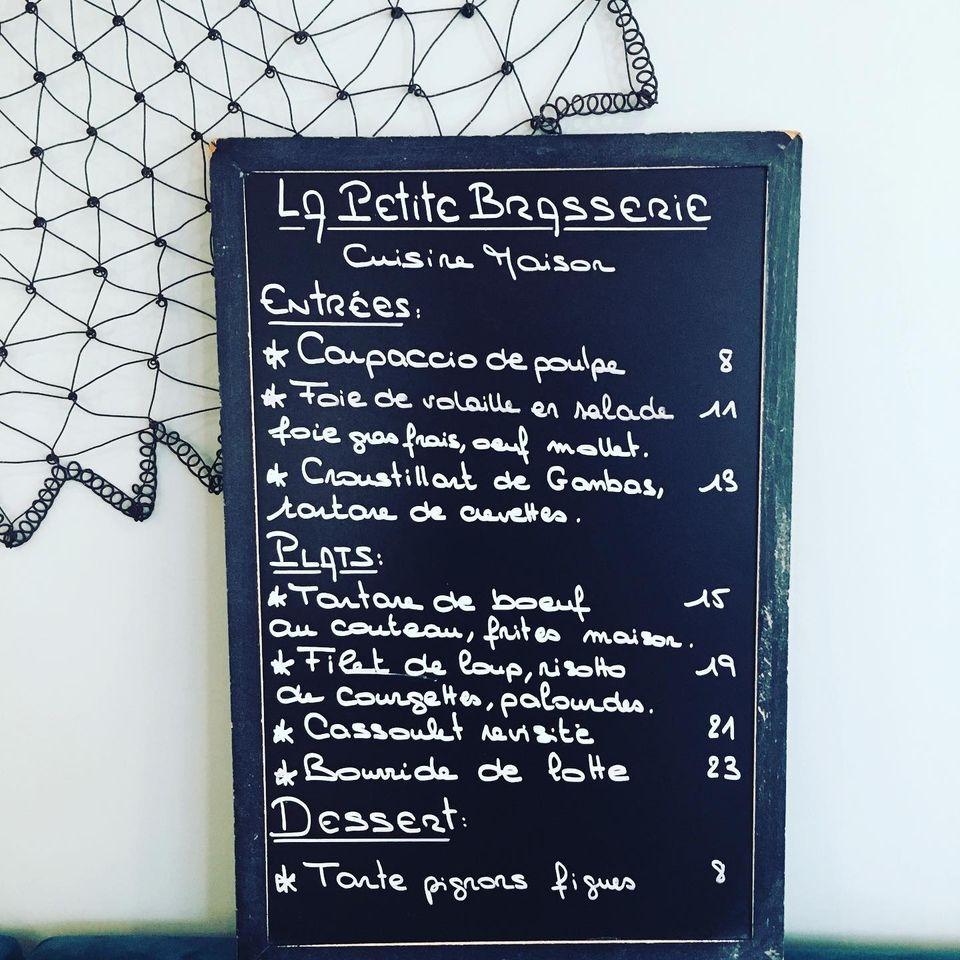 LA PETITE BRASSERIE
Cuisine Maison
ENTRÉES:
* Carpaccio de poulpe 8
* Foie de volaille en salade 11
foie gras frais, oeuf mollet.
* Croustillant de Gambas, 13
tartare de crevettes.
PLATS:
* Tartare de boeuf 15
au couteau, frites maison.
* Filet de loup, risotto 19
de courgettes, palourdes.
* Cassoulet revisité 21
* Bourride de lotte 23
DESSERT:
* Tarte pignons figues 8